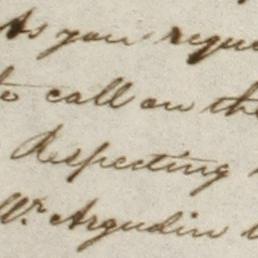 As you reque
to call on the
Respecting
Mr. Argudin